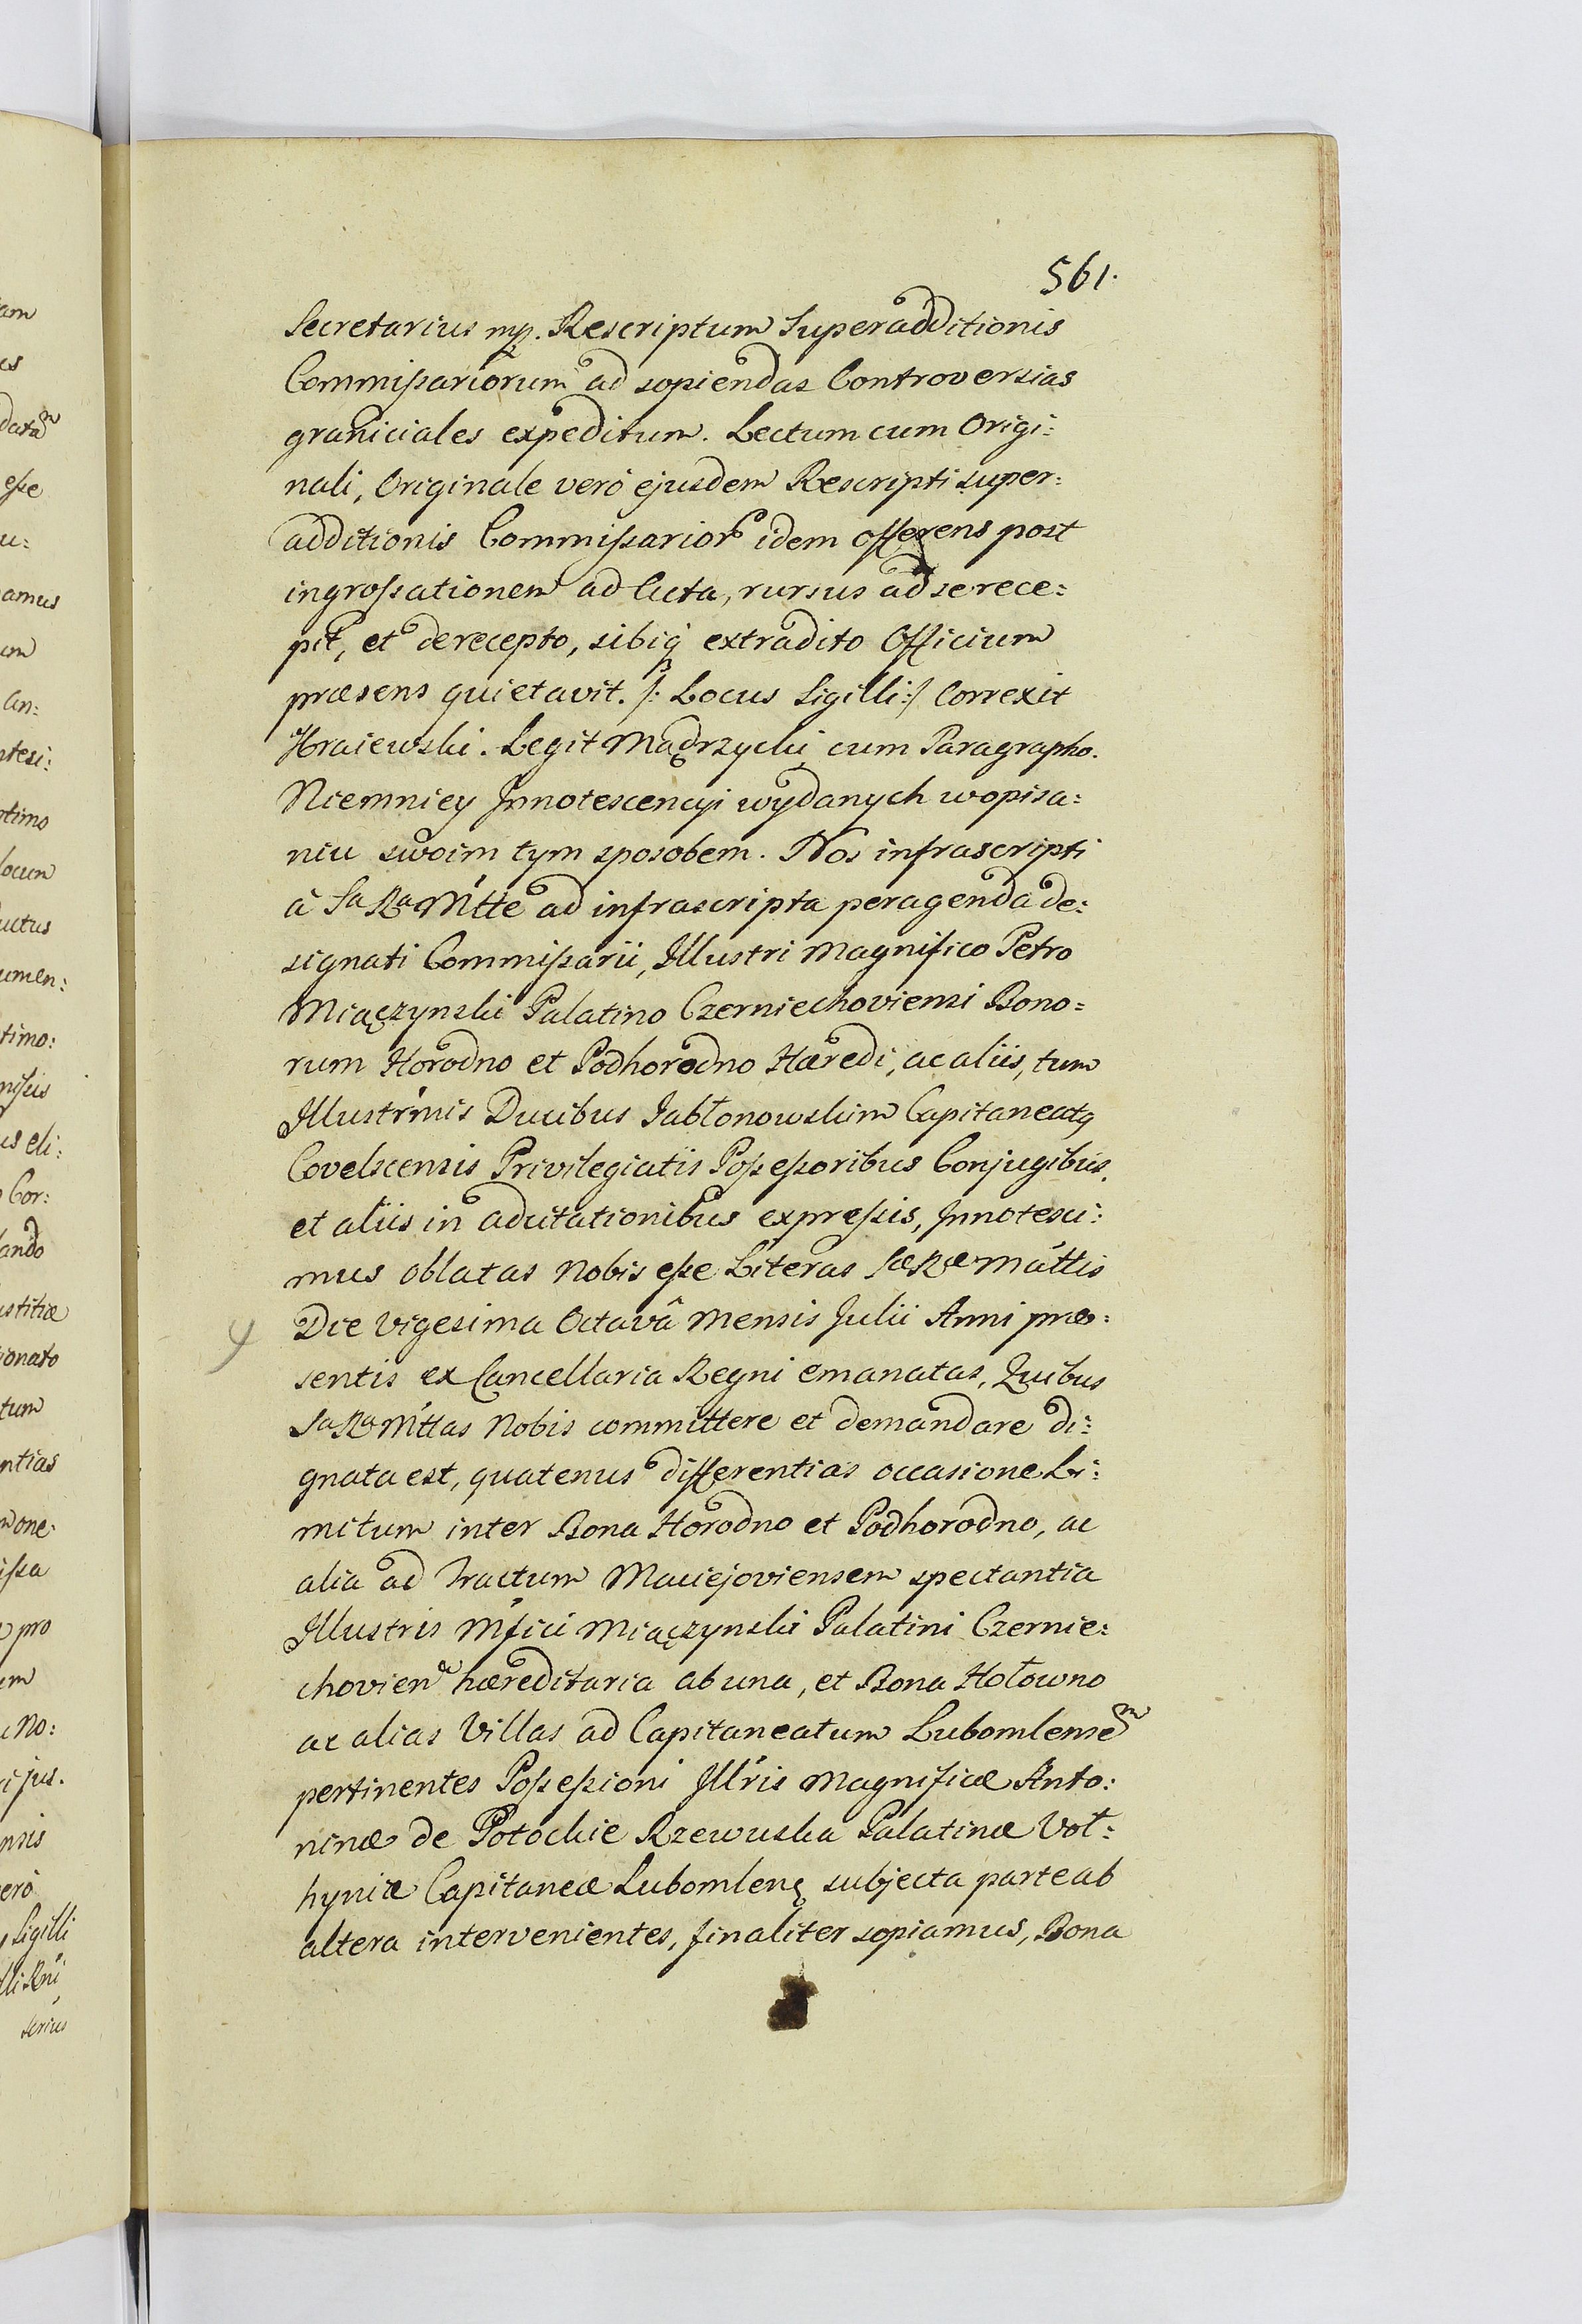 561.
Secretarius mp. Rescriptum Superadditionis
Commissariorum ad sopiendas Controversias
graniciales expeditum. Lectum cum Origi:
nali, Originale verò ejusdem Rescripti super:
additionis Commissarior̃ idem offerens post
ingrossationem ad Acta, rursus ad se rece:
pit, et de recepto, sibiq́ extradito Officium
præsens quietavit. /: Locus Sigilli :/ Correxit
Hraiewski. Legit Mądrzycki cum Paragrapho.
Niemniey Innotescencyi wydanych w opisa:
niu swoim tym sposobem. Nos infrascripti
à Sa Ra Mtte ad infrascripta peragenda de:
signati Commissarii, Illustri Magnifico Petro
Miączynski Palatino Czerniechoviensi Bono:
rum Horodno et Podhorodno Hæredi, ac aliis, tum
Illustrmis Ducibus Jabłonowskim Capitaneatg
Covelscensis Privilegiatis Possessoribus Conjugibus,
et aliis in adcitationibus expressis, Innotesci:
mus oblatas Nobis esse Literas Sæ Ræ Mattis
Die vigesima Octavâ Mensis Julii Anni præ:
sentis ex Cancellaria Regni emanatas, Quibus
Sa Ra Mttas Nobis committere et demandare di:
gnata est, quatenus differentias occasione Li:
mitum inter Bona Horodno et Podhorodno, ac
alia ad Tractum Maciejoviensem spectantia
Illustris Mfici Miączynski Palatini Czernie:
chovien hæreditaria ab una, et Bona Hołowno
ac alias Villas ad Capitaneatum Lubomlensem
pertinentes Possessioni Illris Magnificæ Anto:
ninæ de Potockie Rzewuska Palatinæ Voł:
hyniæ Capitaneæ Lubomlenę subjecta parte ab
altera intervenientes, finaliter sopiamus, Bona